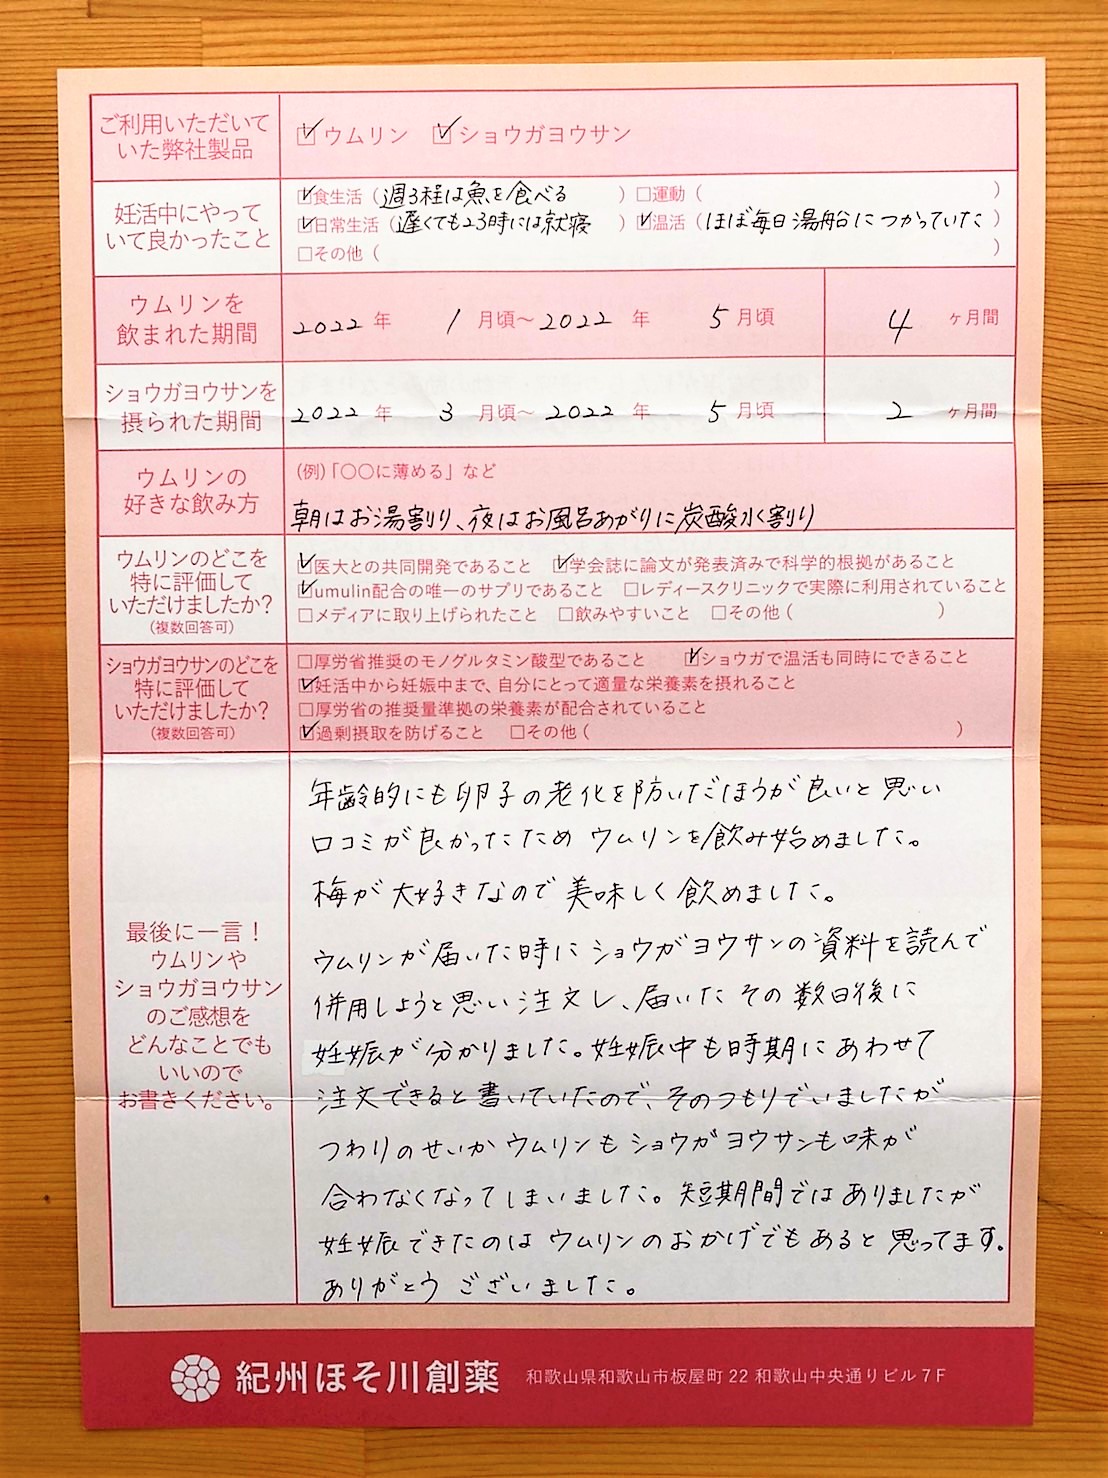 ご利用いただいて
いた弊社製品
☑ウムリン ☑ショウガヨウサン
妊活中にやって
いて良かったこと
☑食生活（週3程は魚を食べる） □運動（ ）
☑日常生活（遅くても23時には就寝） ☑温活（ほぼ毎日湯船につかっていた）
□その他（ ）
ウムリンを
飲まれた期間
2022年 1月頃〜2022年 5月頃 4ヶ月間
ショウガヨウサンを
摂られた期間
2022年 3月頃〜2022年 5月頃 2ヶ月間
ウムリンの
好きな飲み方
（例）「〇〇に薄める」など
朝はお湯割り、夜はお風呂あがりに炭酸水く割り
ウムリンのどこを
特に評価して
いただけましたか?
（複数回答可）
☑医大との共同開発であること ☑学会誌に論文が発表済みで科学的根拠があること
☑umulin配合の唯一のサプリであること □レディースクリニックで実際に利用されていること
□メディアに取り上げられたこと □飲みやすいこと □その他（ ）
ショウガヨウサンのどこを
特に評価して
いただけましたか?
（複数回答可）
□厚労省推奨のモノグルタミン酸型であること ☑ショウガで温活も同時にできること
☑妊活中から妊娠中まで、自分にとって適量な栄養素を摂れること
□厚労省の推奨量準拠の栄養素が配合されていること
☑過剰摂取を防げること □その他（ ）
最後に一言！
ウムリンや
ショウガヨウサン
のご感想を
どんなことでも
いいので
お書きください。
年齢的にも卵子の老化を防いだほうが良いと思い
口コミが良かったため ウムリンを飲み始めました。
梅が大好きなので美味しく飲めました。
ウムリンが届いた時にショウガヨウサンの資料を読んで
併用しようと思い注文し、届いたその数日後に
妊娠が分かりました。妊娠中も時期にあわせて
注文できると書いていたので、そのつもりでいましたが
つわりのせいかウムリンもショウガヨウサンも味が
合わなくなってしまいました。短期間ではありましたが
妊娠できたのはウムリンのおかげでもあると思ってます。
ありがとうございました。
紀州ほそ川創薬 和歌山県和歌山市板屋町22 和歌山中央通りビル7F